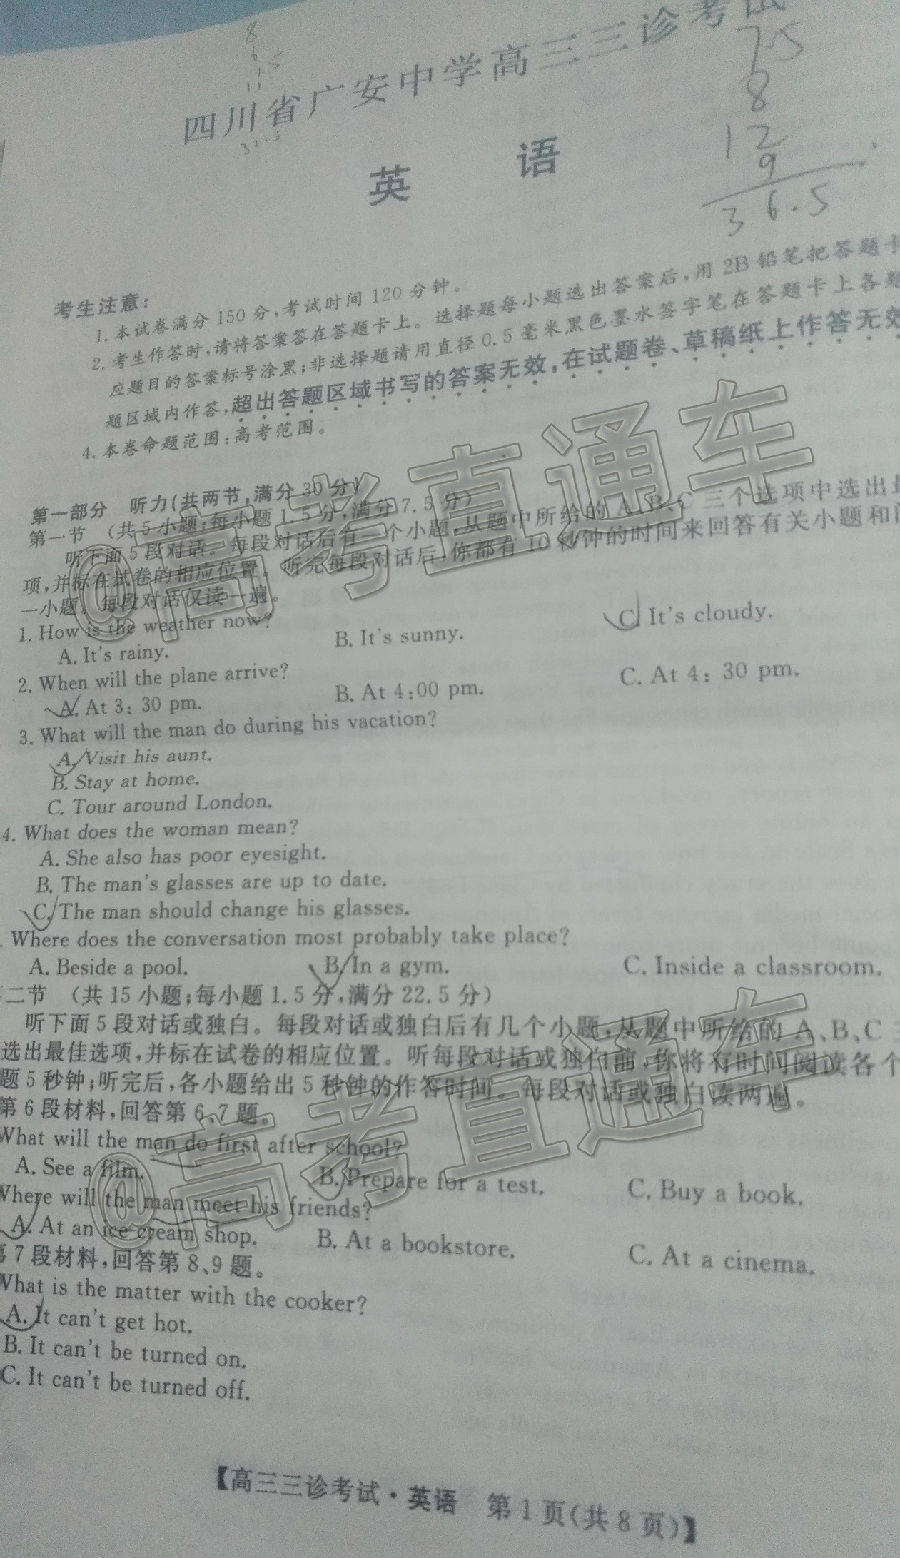 四川省广安中学高三三诊考试
英 语
8
12
9
36.5
考生注意:
1. 本试卷满分 150 分,考试时间 120 分钟。
2. 考生作答时,请将答案答在答题卡上。选择题每小题选出答案后,用 2B 铅笔把答题卡
应题目的答案标号涂黑;非选择题请用直径 0.5 毫米黑色墨水签字笔在答题卡上各题
题区域内作答,超出答题区域书写的答案无效,在试题卷、草稿纸上作答无效
4. 本卷命题范围:高考范围。
第一部分 听力(共两节,满分 30 分)
第一节 (共 5 小题;每小题 1.5 分,满分 7.5 分)
听下面 5 段对话。每段对话后有一个小题,从题中所给的 A、B、C 三个选项中选出
项,并标在试卷的相应位置。听完每段对话后,你都有 10 秒钟的时间来回答有关小题和
一小题。每段对话仅读一遍。
1. How is the weather now?
A. It's rainy. B. It's sunny. C. It's cloudy.
2. When will the plane arrive?
A. At 3: 30 pm. B. At 4:00 pm. C. At 4: 30 pm.
3. What will the man do during his vacation?
A. Visit his aunt.
B. Stay at home.
C. Tour around London.
4. What does the woman mean?
A. She also has poor eyesight.
B. The man's glasses are up to date.
C. The man should change his glasses.
. Where does the conversation most probably take place?
A. Beside a pool. B. In a gym. C. Inside a classroom.
二节 (共 15 小题;每小题 1.5 分,满分 22.5 分)
听下面 5 段对话或独白。每段对话或独白后有几个小题,从题中所给的 A、B、C
选出最佳选项,并标在试卷的相应位置。听每段对话或独白前,你将有时间阅读各个
题 5 秒钟;听完后,各小题给出 5 秒钟的作答时间。每段对话或独白读两遍。
第 6 段材料,回答第 6、7 题。
What will the man do first after school?
A. See a film. B. Prepare for a test. C. Buy a book.
Where will the man meet his friends?
A. At an ice cream shop. B. At a bookstore. C. At a cinema.
7 段材料,回答第 8、9 题。
What is the matter with the cooker?
A. It can't get hot.
B. It can't be turned on.
C. It can't be turned off.
【高三三诊考试·英语 第 1 页(共 8 页)】
@高考直通车
@高考直通车